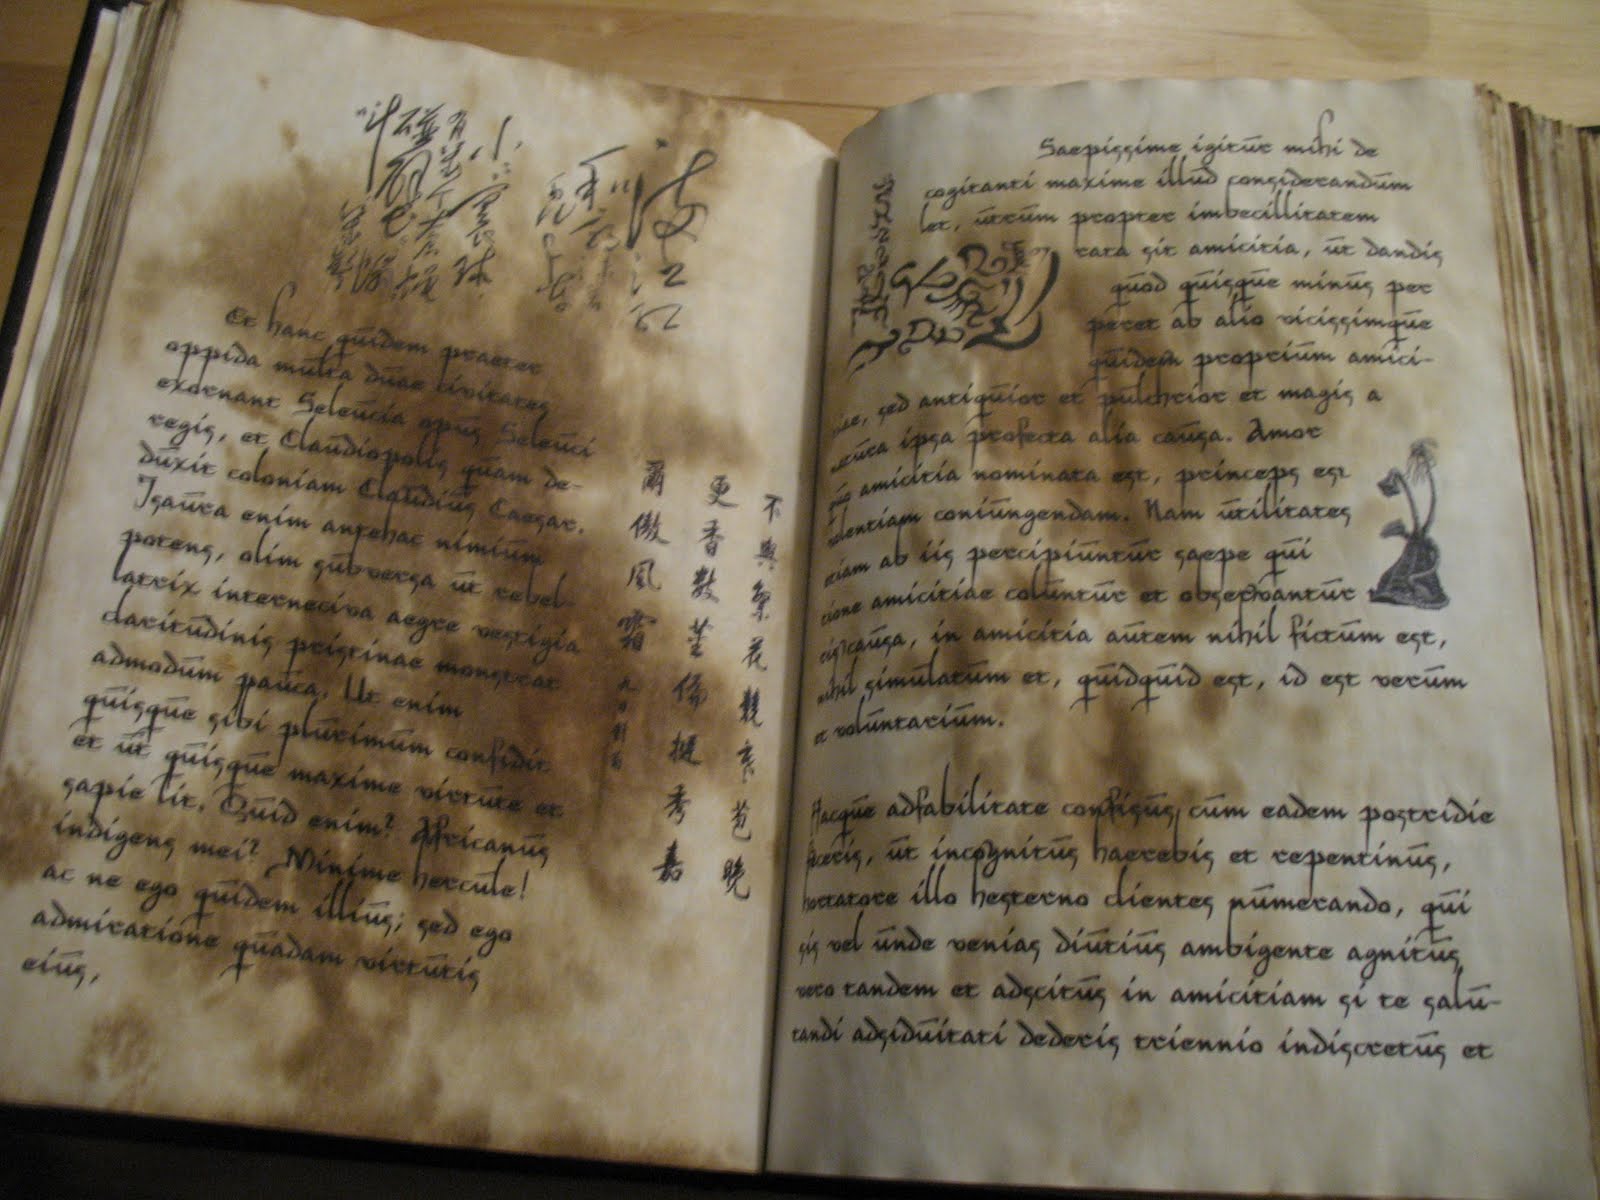 Et hanc quidem praeter
oppida multa duae civitates
exornant Seleucia opus Seleuci
regis, et Claudiopolis quam de-
duxit coloniam Claudius Caesar.
Isaura enim antehac nimium
potens, olim subversa ut rebel-
latrix interneciva aegre vestigia
claritudinis pristinae monstrat
admodum pauca. Ut enim
quisque sibi plurimum confidit
et ut quisque maxime virtute et
sapie lit. Quid enim? Africanus
indigens mei? Minime hercule!
ac ne ego quidem illius; sed ego
admiratione quadam virtutis
eius,
不與繁花競
更香數莖偏挺秀嘉
爾傲風霜
Saepissime igitur mihi de
cogitanti maxime illud considerandum
let, utrum propter imbecillitatem
tata sit amicitia, ut dandis
quod quisque minus per
peret ab alio vicissimque
quidem proprium amici-
iae, sed antiquior et pulchrior et magis a
ipsa profecta alia causa. Amor
amicitia nominata est, princeps est
volentiam coniungendam. Nam utilitates
etiam ab iis percipiuntur saepe qui
tione amicitiae coluntur et observantur
causa, in amicitia autem nihil fictum est,
nihil simulatum et, quidquid est, id est verum
et voluntarium.
Hacque adfabilitate confisus cum eadem postridie
feceris, ut incognitus haerebis et repentinus,
hortatore illo hesterno clientes numerando, qui
sis vel unde venias diutius ambigente agnitus
vero tandem et adscitus in amicitiam si te salu-
tandi adsiduitati dederis triennio indiscretus et